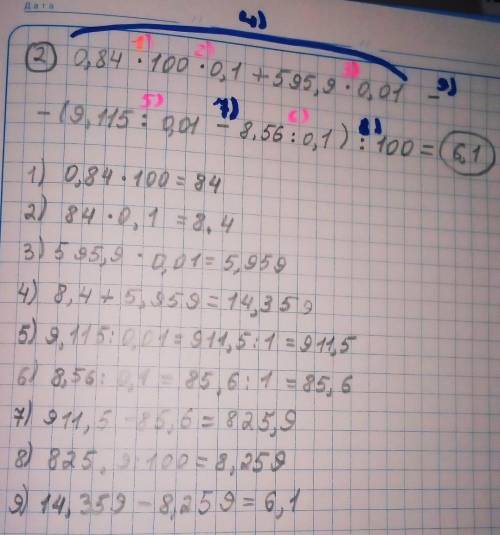 Дата
4)
1) 2) 3)
2) 0,84 · 100 · 0,1 + 595,9 · 0,01 - 9)
5) 7) 6) 8)
- (9,115 : 0,01 - 8,56 : 0,1) : 100 = 6,1
1) 0,84 · 100 = 84
2) 84 · 0,1 = 8,4
3) 595,9 · 0,01 = 5,959
4) 8,4 + 5,959 = 14,359
5) 9,115 : 0,01 = 911,5 : 1 = 911,5
6) 8,56 : 0,1 = 85,6 : 1 = 85,6
7) 911,5 - 85,6 = 825,9
8) 825,9 : 100 = 8,259
9) 14,359 - 8,259 = 6,1